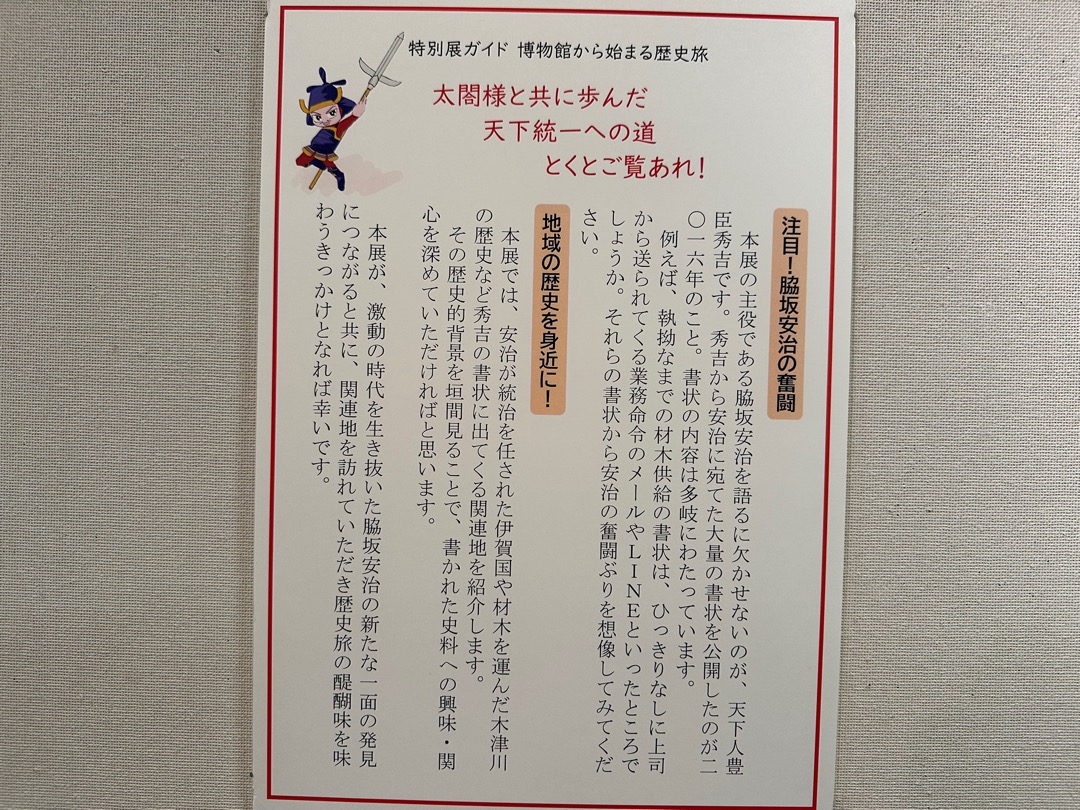 特別展ガイド 博物館から始まる歴史旅
太閤様と共に歩んだ
天下統一への道
とくとご覧あれ！
注目！脇坂安治の奮闘
本展の主役である脇坂安治を語るに欠かせないのが、天下人豊
臣秀吉です。秀吉から安治に宛てた大量の書状を公開したのが二
〇一六年のこと。書状の内容は多岐にわたっています。
例えば、執拗なまでの材木供給の書状は、ひっきりなしに上司
から送られてくる業務命令のメールやLINEといったところで
しょうか。それらの書状から安治の奮闘ぶりを想像してみてくだ
さい。
地域の歴史を身近に！
本展では、安治が統治を任された伊賀国や材木を運んだ木津川
の歴史など秀吉の書状に出てくる関連地を紹介します。
その歴史的背景を垣間見ることで、書かれた史料への興味・関
心を深めていただければと思います。
本展が、激動の時代を生き抜いた脇坂安治の新たな一面の発見
につながると共に、関連地を訪れていただき歴史旅の醍醐味を味
わうきっかけとなれば幸いです。